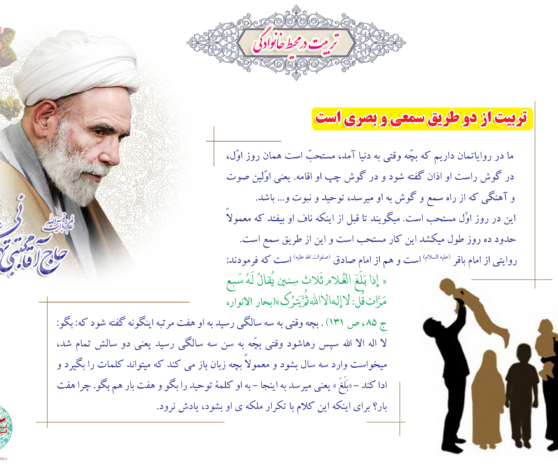 تربیت در محیط خانوادگی
تربیت از دو طریق سمعی و بصری است
ما در روایاتمان داریم که بچّه وقتی به دنیا آمد، مستحبّ است همان روز اوّل،
در گوش راست او اذان گفته شود و در گوش چپ او اقامه. یعنی اوّلین صوت
و آهنگی که از راه سمع و گوش به او میرسد، توحید و نبوت و... باشد.
این در روز اوّل مستحب است. میگویند تا قبل از اینکه ناف او بیفتد که معمولاً
حدود ده روز طول میکشد این کار مستحب است و این از طریق سمع است.
روایتی از امام باقر (علیه السلام) است و هم از امام صادق (صلوات الله علیه) است که فرمودند:
« إِذا بَلَغَ الْغُلام ثَلاثَ سِنین یُقالُ لَهُ سَبع
مَرّات قُل: لا إله الا الله ثُمَّ یُترَک»(بحار الانوار،
ج ۸۵، ص ۱۳۱) . بچه وقتی به سه سالگی رسید به او هفت مرتبه اینگونه گفته شود که: بگو:
لا اله الا الله سپس رهاشود وقتی بچّه به سن سه سالگی رسید یعنی دو سالش تمام شد،
میخواست وارد سه سال بشود و معمولاً بچه زبان باز می کند که میتواند کلمات را بگیرد و
ادا کند - «بَلَغَ » یعنی میرسد به اینجا - به او کلمهٔ توحید را بگو و هفت بار هم بگو. چرا هفت
بار؟ برای اینکه این کلام با تکرار ملکه ی او بشود، یادش نرود.
حاج آقا مجتبی